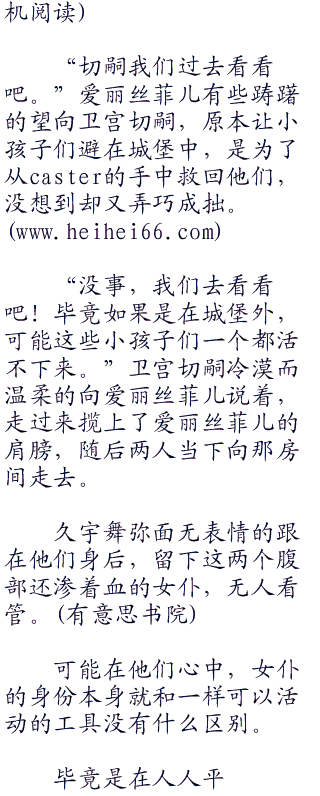 机阅读)
“切嗣我们过去看看
吧。”爱丽丝菲儿有些踌躇
的望向卫宫切嗣，原本让小
孩子们避在城堡中，是为了
从caster的手中救回他们，
没想到却又弄巧成拙。
(www.heihei66.com)
“没事，我们去看看
吧！毕竟如果是在城堡外，
可能这些小孩子们一个都活
不下来。”卫宫切嗣冷漠而
温柔的向爱丽丝菲儿说着，
走过来揽上了爱丽丝菲儿的
肩膀，随后两人当下向那房
间走去。
久宇舞弥面无表情的跟
在他们身后，留下这两个腹
部还渗着血的女仆，无人看
管。(有意思书院)
可能在他们心中，女仆
的身份本身就和一样可以活
动的工具没有什么区别。
毕竟是在人人平